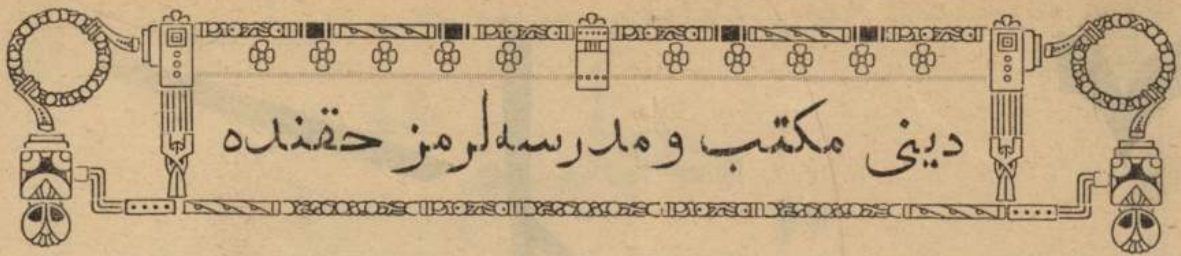 دینی مکتب و مدرسه‌لرمز حقنده